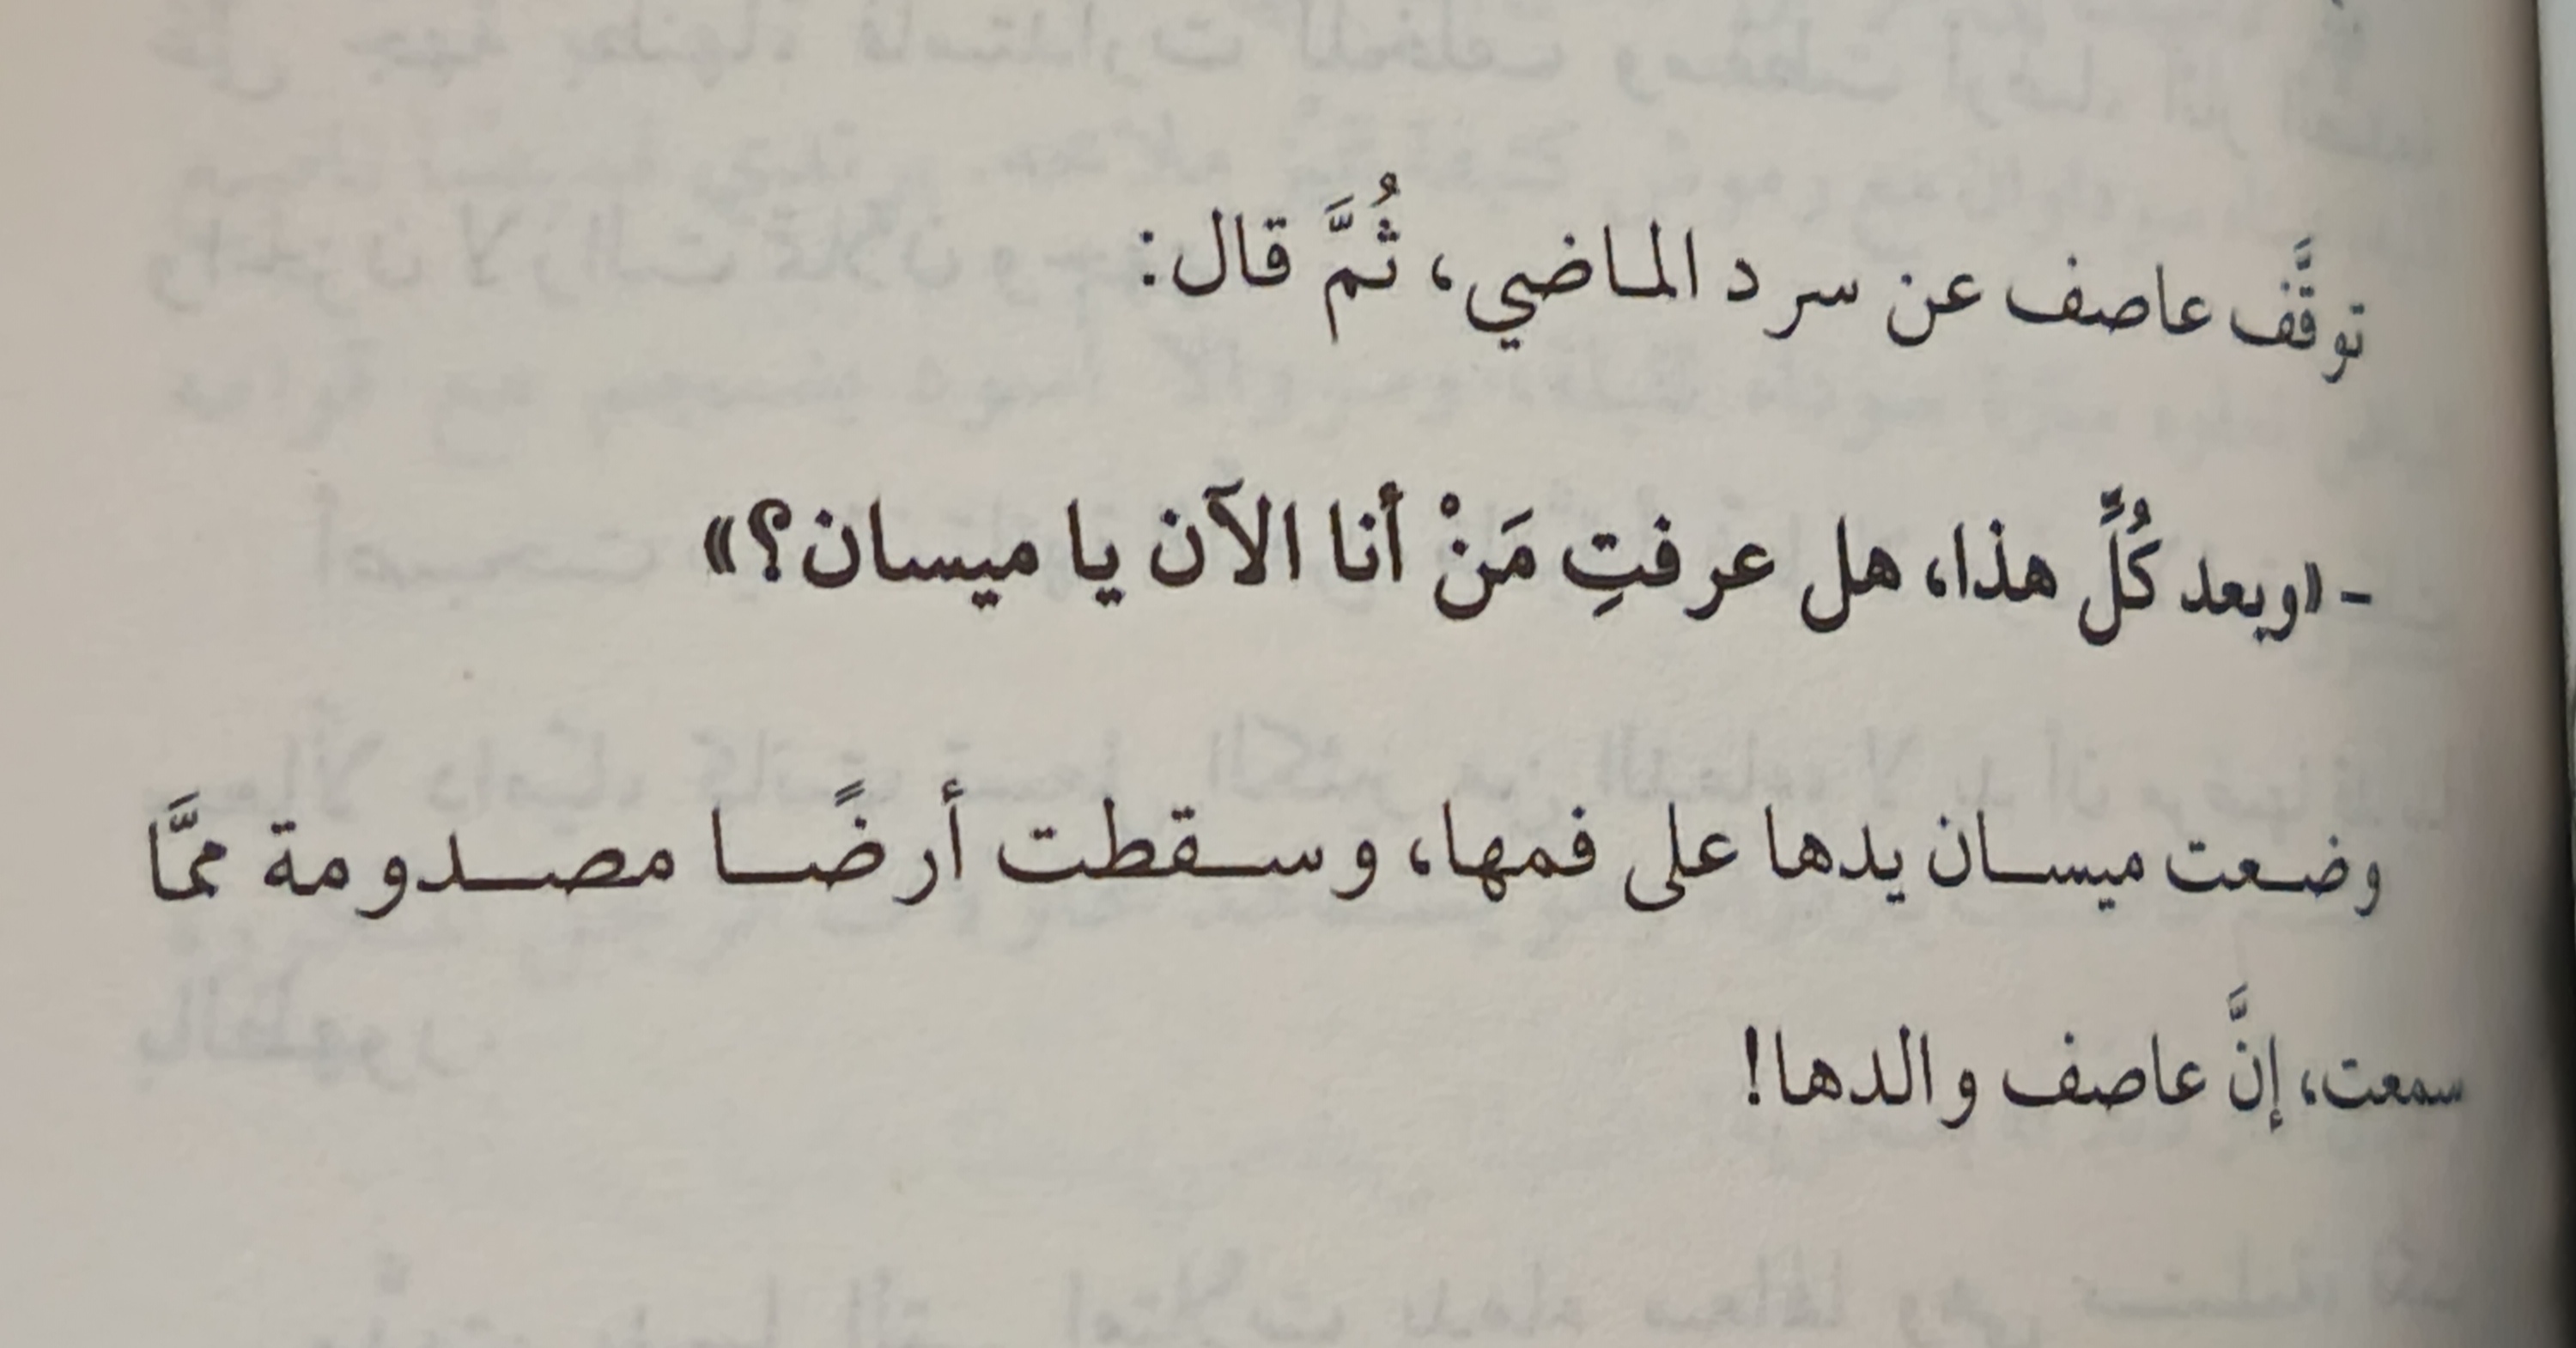 توقَّف عاصف عن سرد الماضي، ثُمَّ قال:
- «وبعد كُلِّ هذا، هل عرفتِ مَنْ أنا الآن يا ميسان؟»
وضعت ميسان يدها على فمها، وسقطت أرضًا مصدومة ممَّا
سمعت، إنَّ عاصف والدها!